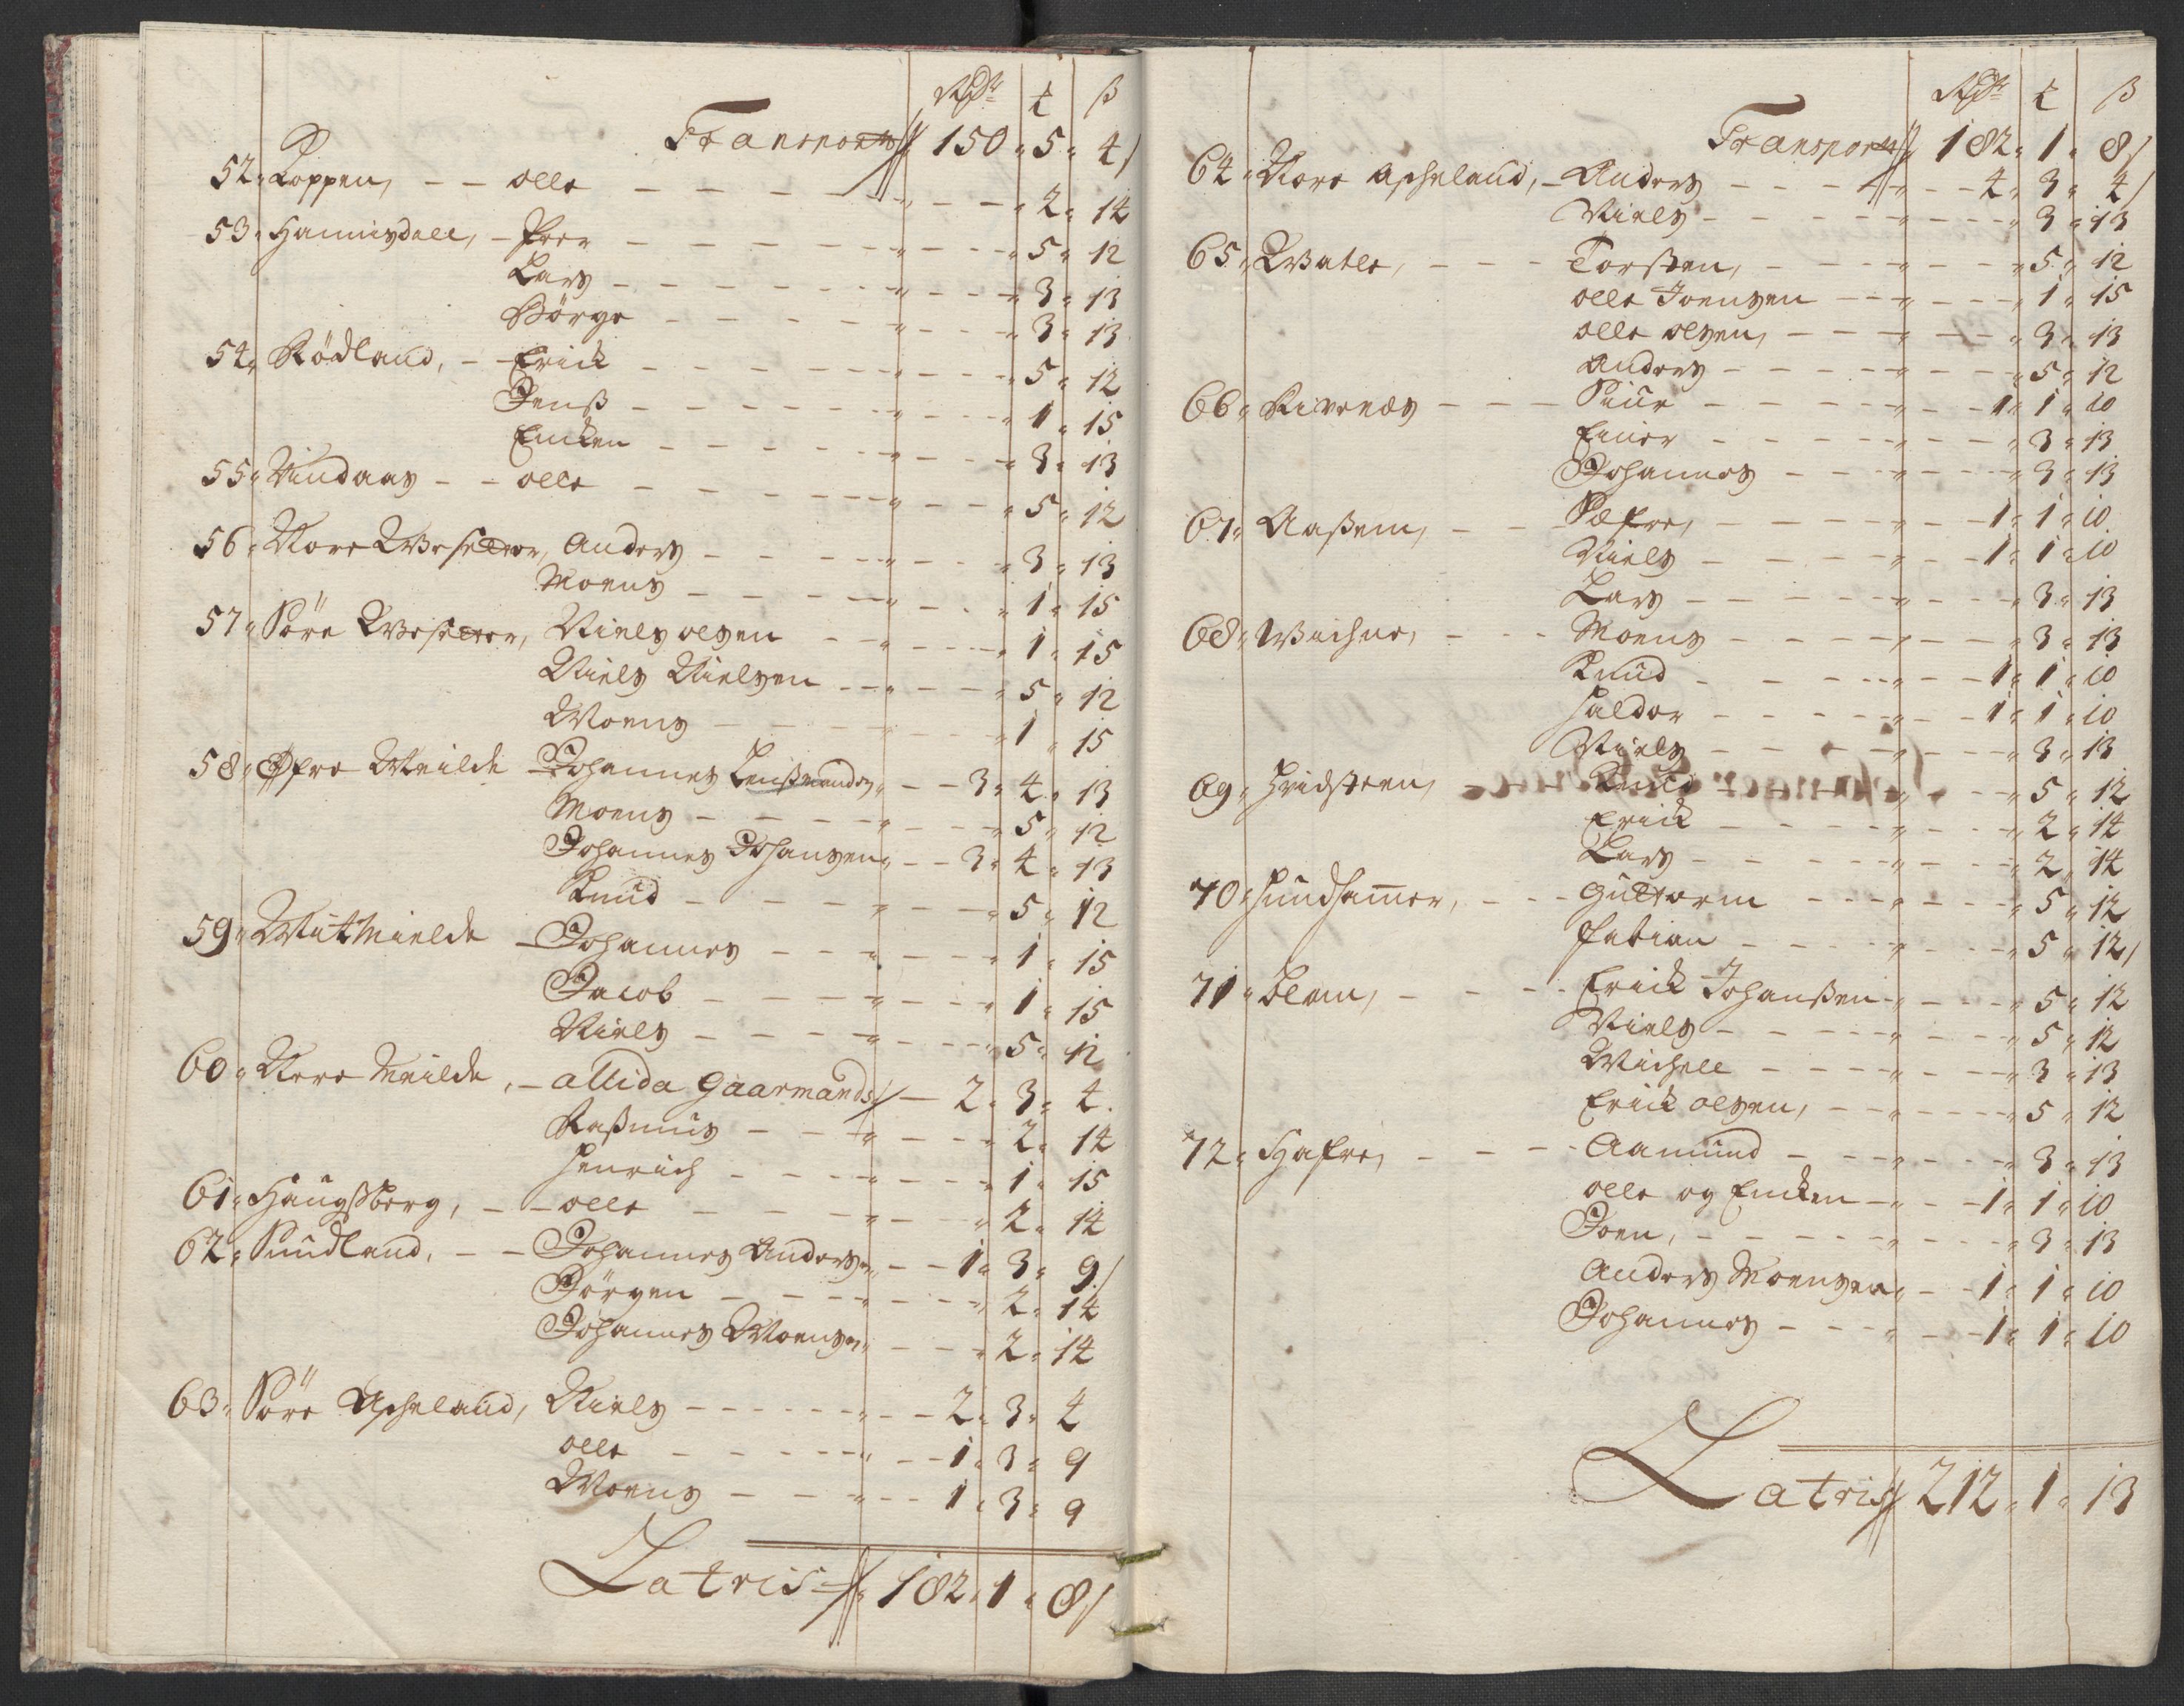 Rdr ȶ ß
Transport 150 " 5 " 4/
52 " Koppen, - - olle - - - " - - " 2 " 14
53 " Hannisdall, - Peer - - - " - - " 5 " 12
Lars - - - " - - " 3 " 13
Børge - - - " - - " 3 " 13
54 " Rødland, - - Erick - - - " - - " 5 " 12
Jenß - - - " - - " 1 " 15
Emken - - - " - - " 3 " 13
55 " Vindaas - - olle - - - " - - " 5 " 12
56 " Nore Wesetter, Anders - - - " - - " 3 " 13
Moens - - - " - - " 1 " 15
57 " Søre Wesetter, Niels olsen - - " - - " 1 " 15
Niels Nielsen - - " - - " 5 " 12
Moens - - - " - - " 1 " 15
58 " Øfre Mielde - Johannes Lenßmand " - - 3 " 4 " 13
Moens - - - " - - " 5 " 12
Johannes Johansen " - - 3 " 4 " 13
Knud - - - " - - " 5 " 12
59 " Mit Mielde - Johannes - - " - - " 1 " 15
Jacob - - - " - - " 1 " 15
Niels - - - " - - " 5 " 12
60 " Nere Mielde, - allida Gaarmands - 2 " 3 " 4
Raßmus - - " - - " 2 " 14
Henrich - - - " - - " 1 " 15
61 " Haugsberg, - - olle - - - " - - " 2 " 14
62 " Sundland, - - Johannes Anders " - - 1 " 3 " 9/
Jørgen - - - " - - " 2 " 14
Johannes Moens " - - " 2 " 14
63 " Søre Aпheland, Niels - - - " - - 2 " 3 " 4
olle - - - " - - 1 " 3 " 9
Moens - - - " - - 1 " 3 " 9
Latris 182 " 1 " 8/
Rdr ȶ ß
Transport 182 " 1 " 8/
64 " Nore Apheland, - Anders - - - " - - 4 " 3 " 4/
Niels - - - " - - " 3 " 13
65 " Watle, - - - Torsten, - - - " - - " 5 " 12
olle Joensen - - " - - " 1 " 15
olle olsen, - - - " - - " 3 " 13
Anders - - - " - - " 5 " 12
66 " Rivenæs - - - Siur - - - " - - 1 " 1 " 10
Einer - - - " - - " 3 " 13
Johannes - - - " - - " 3 " 13
67 " Aaßem, - - - - - - " - - 1 " 1 " 10
Niels - - - " - - 1 " 1 " 10
Lars - - - " - - " 3 " 13
68 " - - - Moens - - - " - - " 3 " 13
Knud - - - " - - 1 " 1 " 10
Haldor - - - " - - 1 " 1 " 10
Niels - - - " - - " 3 " 13
69 " Hvidsteen, Knud " - - " 5 " 12
Erick - - - " - - " 2 " 14
Lars - - - " - - " 2 " 14
70 " Hundhamer, - - - Guttorm - - - " - - " 5 " 12
Fabian - - - " - - " 5 " 12/
71 " Blom, - - - Erick Johanßen " - - " 5 " 12
Niels - - - " - - " 5 " 12
Michell - - - " - - " 3 " 13
Erick olsen, - - " - - " 5 " 12
72 " Hafre, - - - Aamund - - - " - - " 3 " 13
olle og Emken - " - - 1 " 1 " 10
Joen, - - - " - - " 3 " 13
Anders Moensen " - - 1 " 1 " 10
Johannes - - - " - - 1 " 1 " 10
Latris 212 " 1 " 13